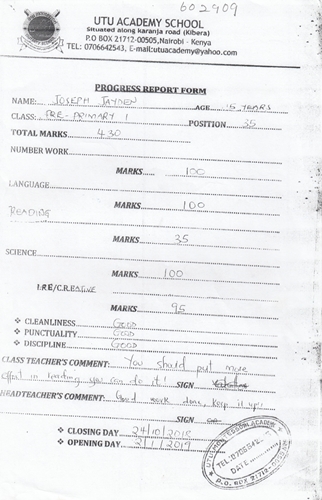 602909
UTU ACADEMY SCHOOL
Situated along karanja road (Kibera)
P.O BOX 21712-00505, Nairobi - Kenya
TEL: 0706642543, E-mail:utuacademy@yahoo.com
PROGRESS REPORT FORM
NAME: JOSEPH JAYDEN AGE 5 YEARS
CLASS: PRE-PRIMARY 1 POSITION 35
TOTAL MARKS 430
NUMBER WORK
MARKS 100
LANGUAGE
MARKS 100
READING
MARKS 35
SCIENCE
MARKS 100
I.RE/C.REATIVE
MARKS 95
❖ CLEANLINESS GOOD
❖ PUNCTUALITY GOOD
❖ DISCIPLINE GOOD
CLASS TEACHER'S COMMENT: You should put more
effort in reading, you can do it! SIGN
HEADTEACHER'S COMMENT: Good work done, keep it up!
SIGN
❖ CLOSING DAY 24/10/2018
❖ OPENING DAY 2/1/2019
TEL: 0706642
DATE
P.O. BOX 21712